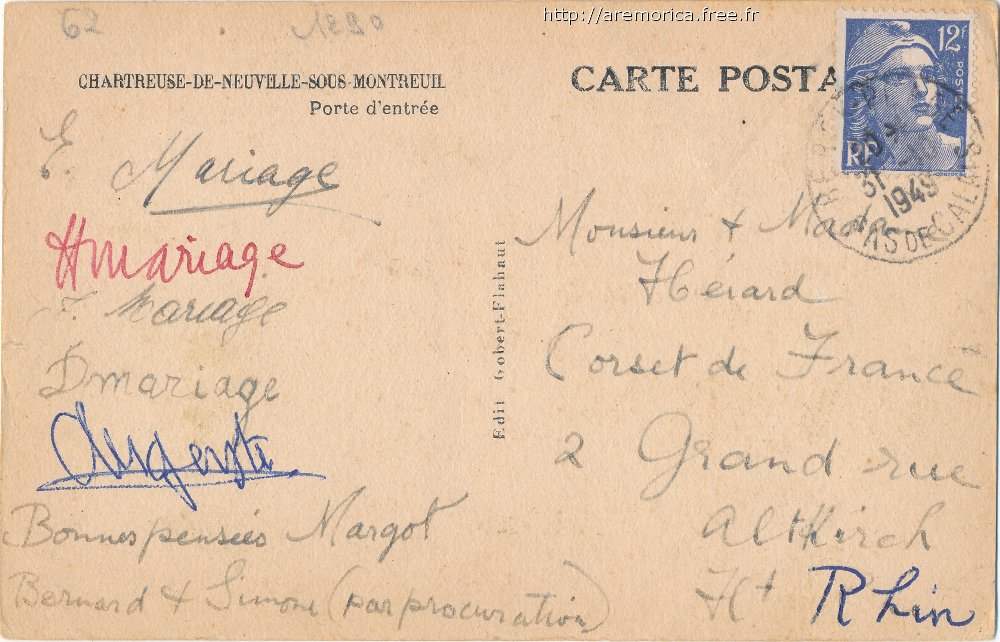 http://aremorica.free.fr
62
1890
CHARTREUSE-DE-NEUVILLE-SOUS-MONTREUIL
Porte d'entrée
CARTE POSTA
12F
POSTES
RF
31
1949
PAS DE CALAIS
E. Mariage
H mariage
F. Mariage
D mariage
Bonnes pensées Margot
Bernard & Simone (par procuration)
Edit Gobert-Flahaut
Monsieur & Mada
Hérard
Corset de France
2 Grand rue
Altkirch
Ht Rhin